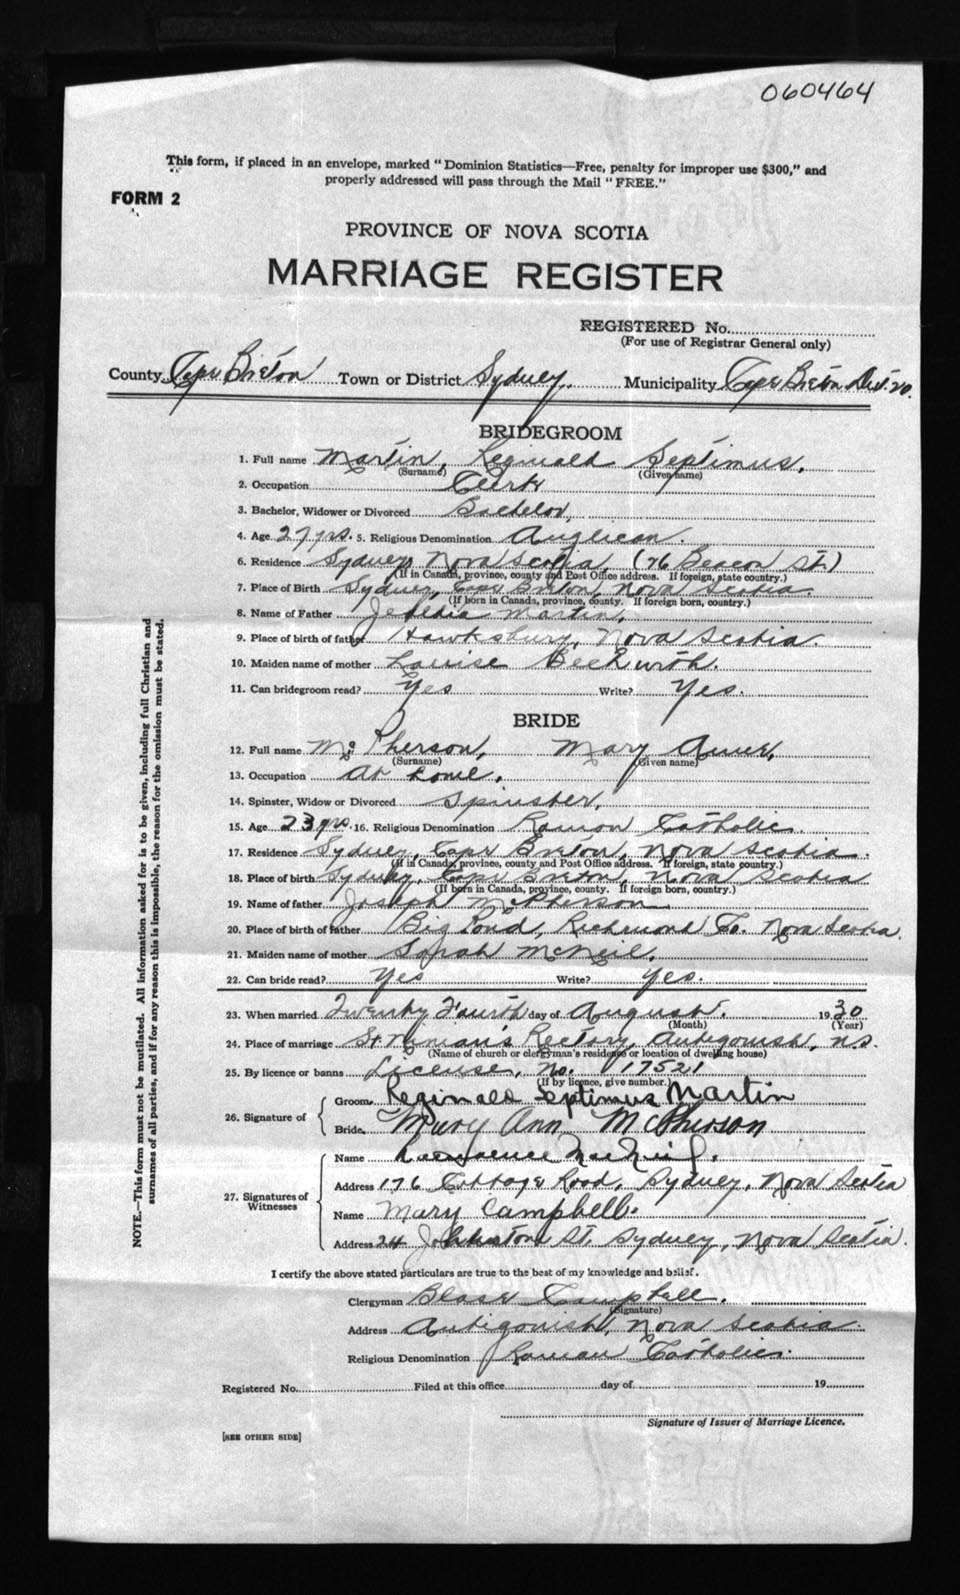 060464
This form, if placed in an envelope, marked "Dominion Statistics—Free, penalty for improper use $300," and
properly addressed will pass through the Mail "FREE."
FORM 2
PROVINCE OF NOVA SCOTIA
MARRIAGE REGISTER
REGISTERED No.
(For use of Registrar General only)
County Cape Breton Town or District Sydney. Municipality Cape Breton Div. 20.
BRIDEGROOM
1. Full name Martin, Reginald Septimus.
(Surname) (Given name)
2. Occupation Clerk
3. Bachelor, Widower or Divorced Bachelor,
4. Age 27 yrs. 5. Religious Denomination Anglican.
6. Residence Sydney Nova Scotia, (76 Beacon St.)
(If in Canada, province, county and Post Office address. If foreign, state country.)
7. Place of Birth Sydney, Cape Breton, Nova Scotia.
(If born in Canada, province, county. If foreign born, country.)
8. Name of Father Martin,
9. Place of birth of father Hawksbury, Nova Scotia.
10. Maiden name of mother Louise Beckwith.
11. Can bridegroom read? Yes Write? Yes.
BRIDE
12. Full name McPherson, Mary Anne,
(Surname) (Given name)
13. Occupation At home.
14. Spinster, Widow or Divorced Spinster,
15. Age 23 yrs. 16. Religious Denomination Roman Catholic.
17. Residence Sydney, Cape Breton, Nova Scotia.
(If in Canada, province, county and Post Office address. If foreign, state country.)
18. Place of birth Sydney, Cape Breton, Nova Scotia
(If born in Canada, province, county. If foreign born, country.)
19. Name of father Joseph McPherson
20. Place of birth of father Big Pond, Richmond Co. Nova Scotia.
21. Maiden name of mother Sarah McNeil.
22. Can bride read? Yes Write? Yes.
23. When married Twenty Fourth day of August. 1930
(Month) (Year)
24. Place of marriage St. Ninian's Rectory, Antigonish, N.S.
(Name of church or clergyman's residence or location of dwelling house)
25. By licence or banns License, No. 17521
(If by licence, give number.)
26. Signature of
Groom Reginald Septimus Martin
Bride Mary Ann McPherson
27. Signatures of Witnesses
Name
Address 176 Cottage Road, Sydney, Nova Scotia
Name Mary Campbell.
Address 24 Johnstone St. Sydney, Nova Scotia.
I certify the above stated particulars are true to the best of my knowledge and belief.
Clergyman Campbell.
(Signature)
Address Antigonish, Nova Scotia.
Religious Denomination Roman Catholic.
Registered No. Filed at this office day of 19
Signature of Issuer of Marriage Licence.
[SEE OTHER SIDE]
NOTE.—This form must not be mutilated. All information asked for is to be given, including full Christian and
surnames of all parties, and if for any reason this is impossible, the reason for the omission must be stated.